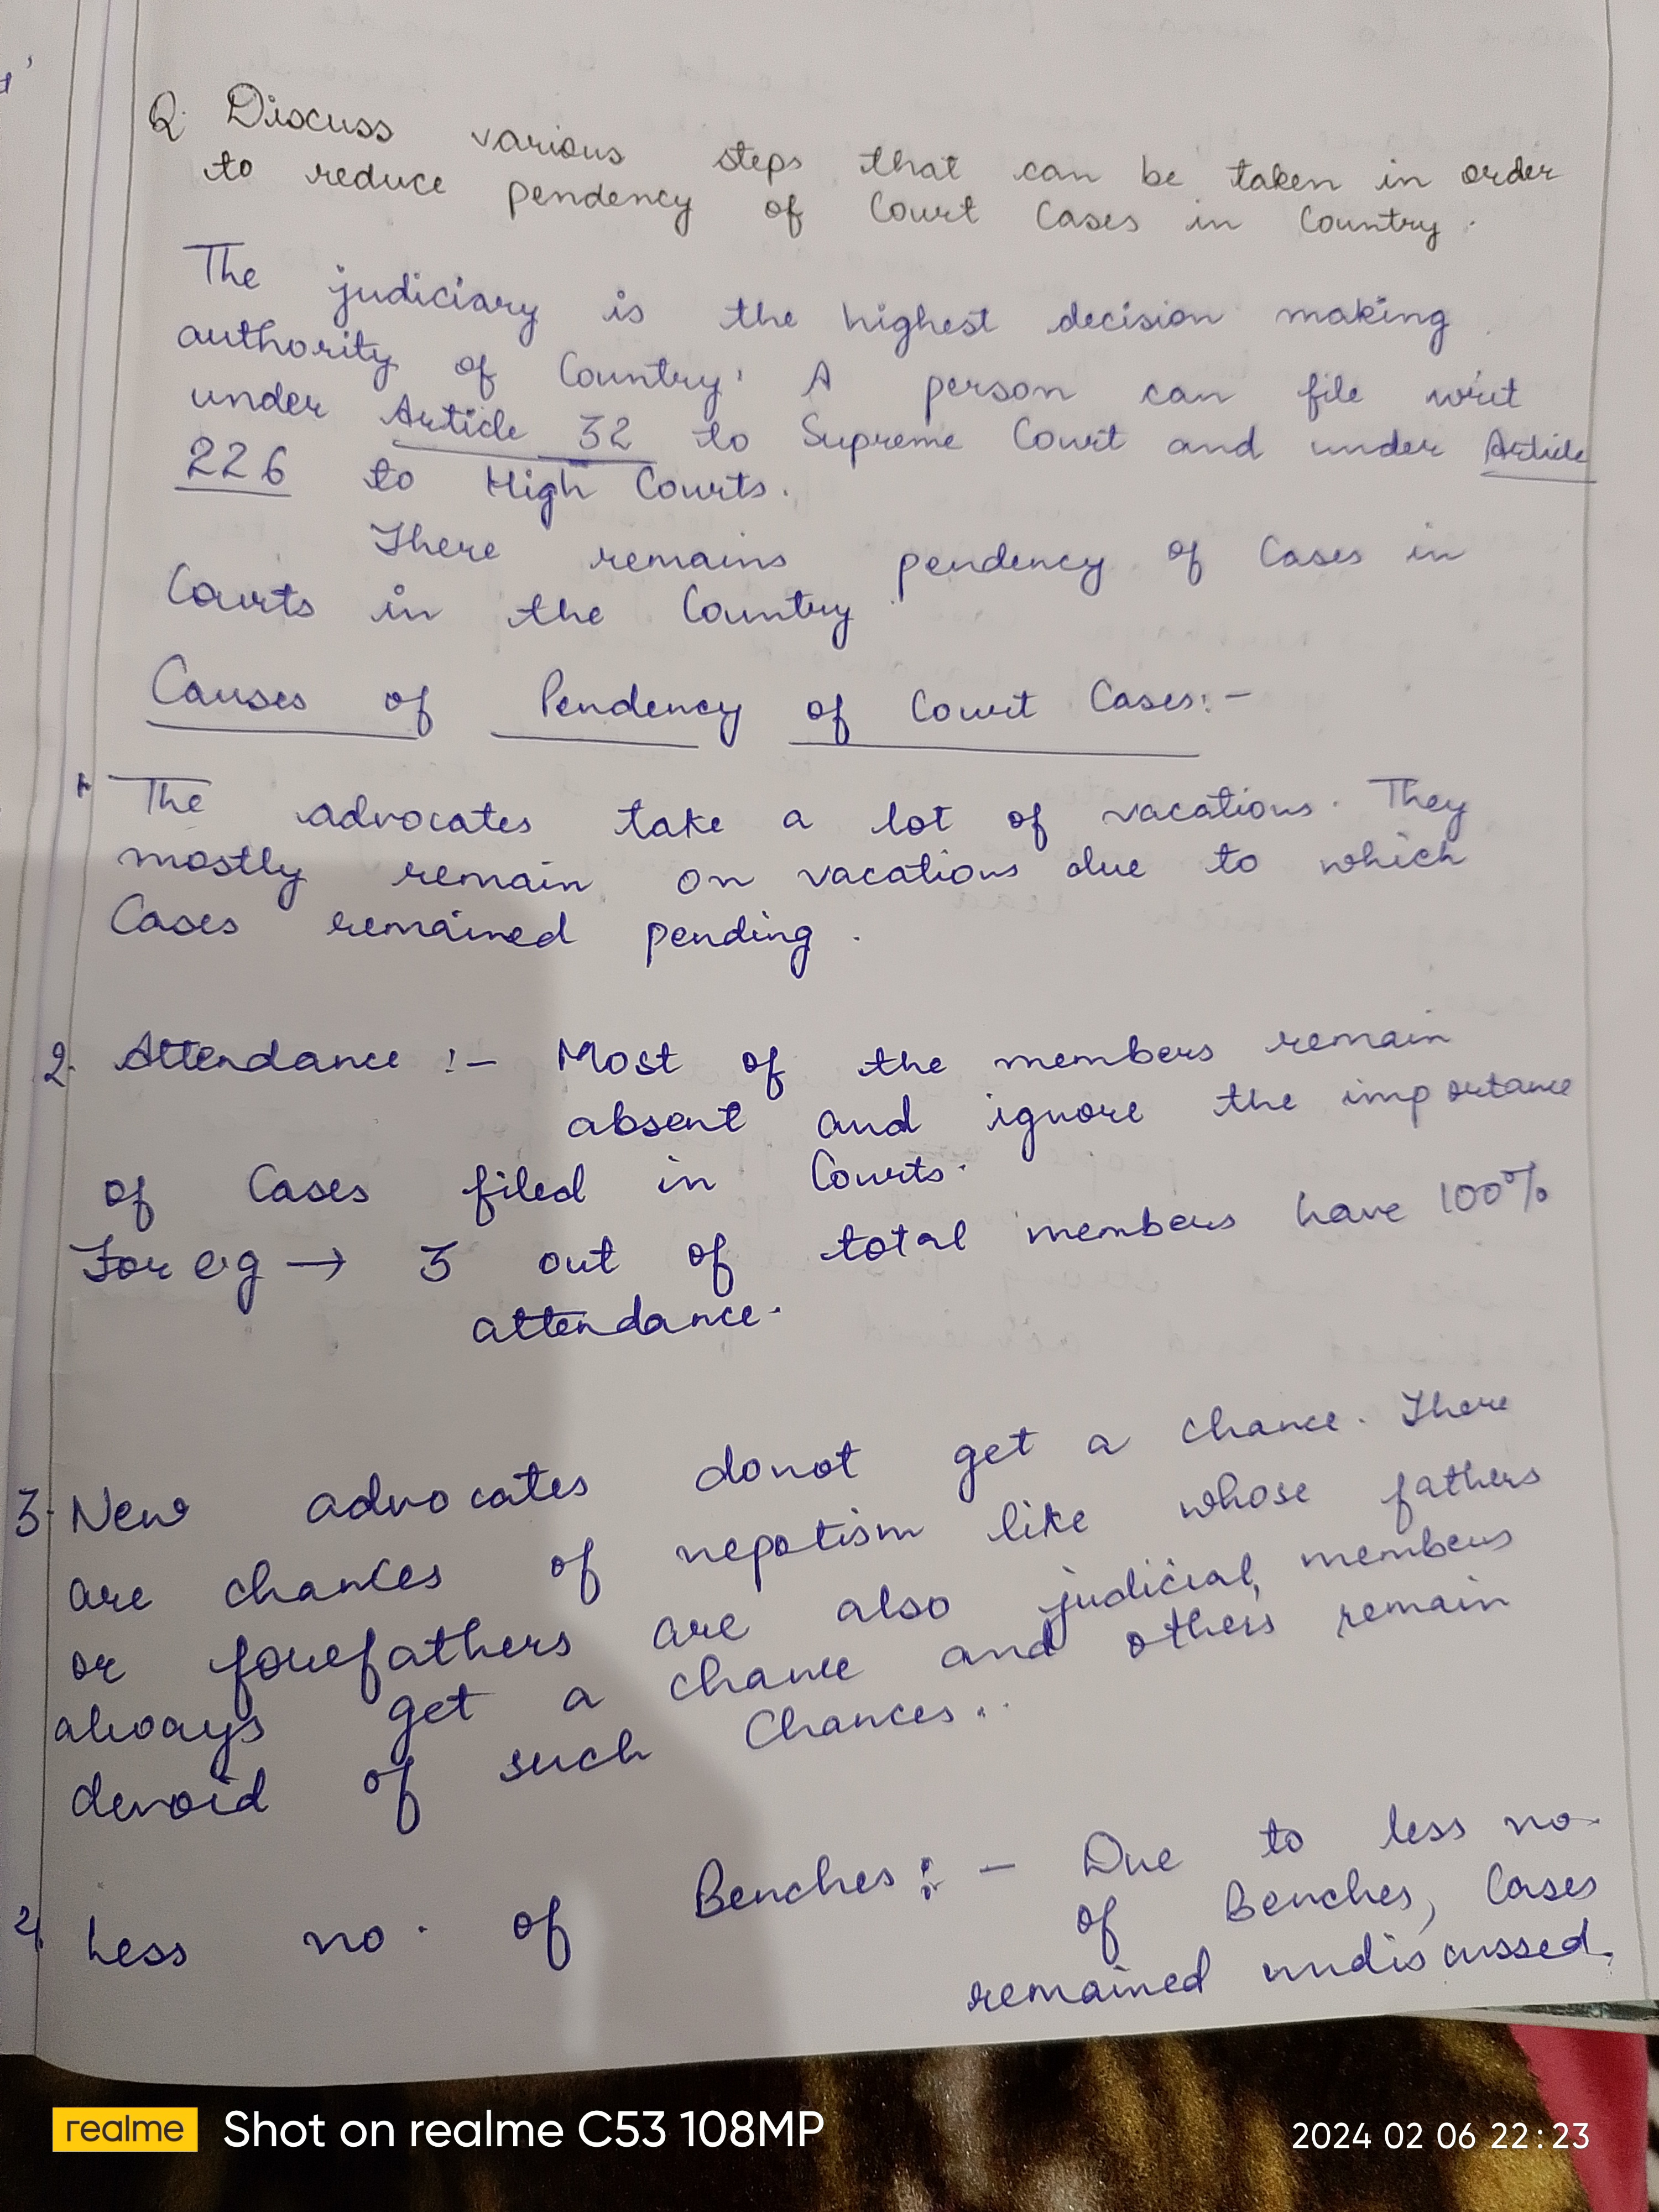 Q. Discuss various steps that can be taken in order
to reduce pendency of Court Cases in Country.
The judiciary is the highest decision making
authority of Country. A person can file writ
under Article 32 to Supreme Court and under Article
226 to High Courts.
There remains pendency of Cases in
Courts in the Country
Causes of Pendency of Court Cases:-
The advocates take a lot of vacations. They
mostly remain on vacations due to which
Cases remained pending.
2. Attendance :- Most of the members remain
absent and ignore the importance
of Cases filed in Courts.
For eg → 3 out of total members have 100%
attendance.
3. New advocates donot get a chance. There
are chances of nepotism like whose fathers
or forefathers are also judicial members
always get a chance and others remain
devoid of such Chances..
4. Less no. of Benches :- Due to less no.
of Benches, Cases
remained undiscussed.
realme Shot on realme C53 108MP
2024 02 06 22:23